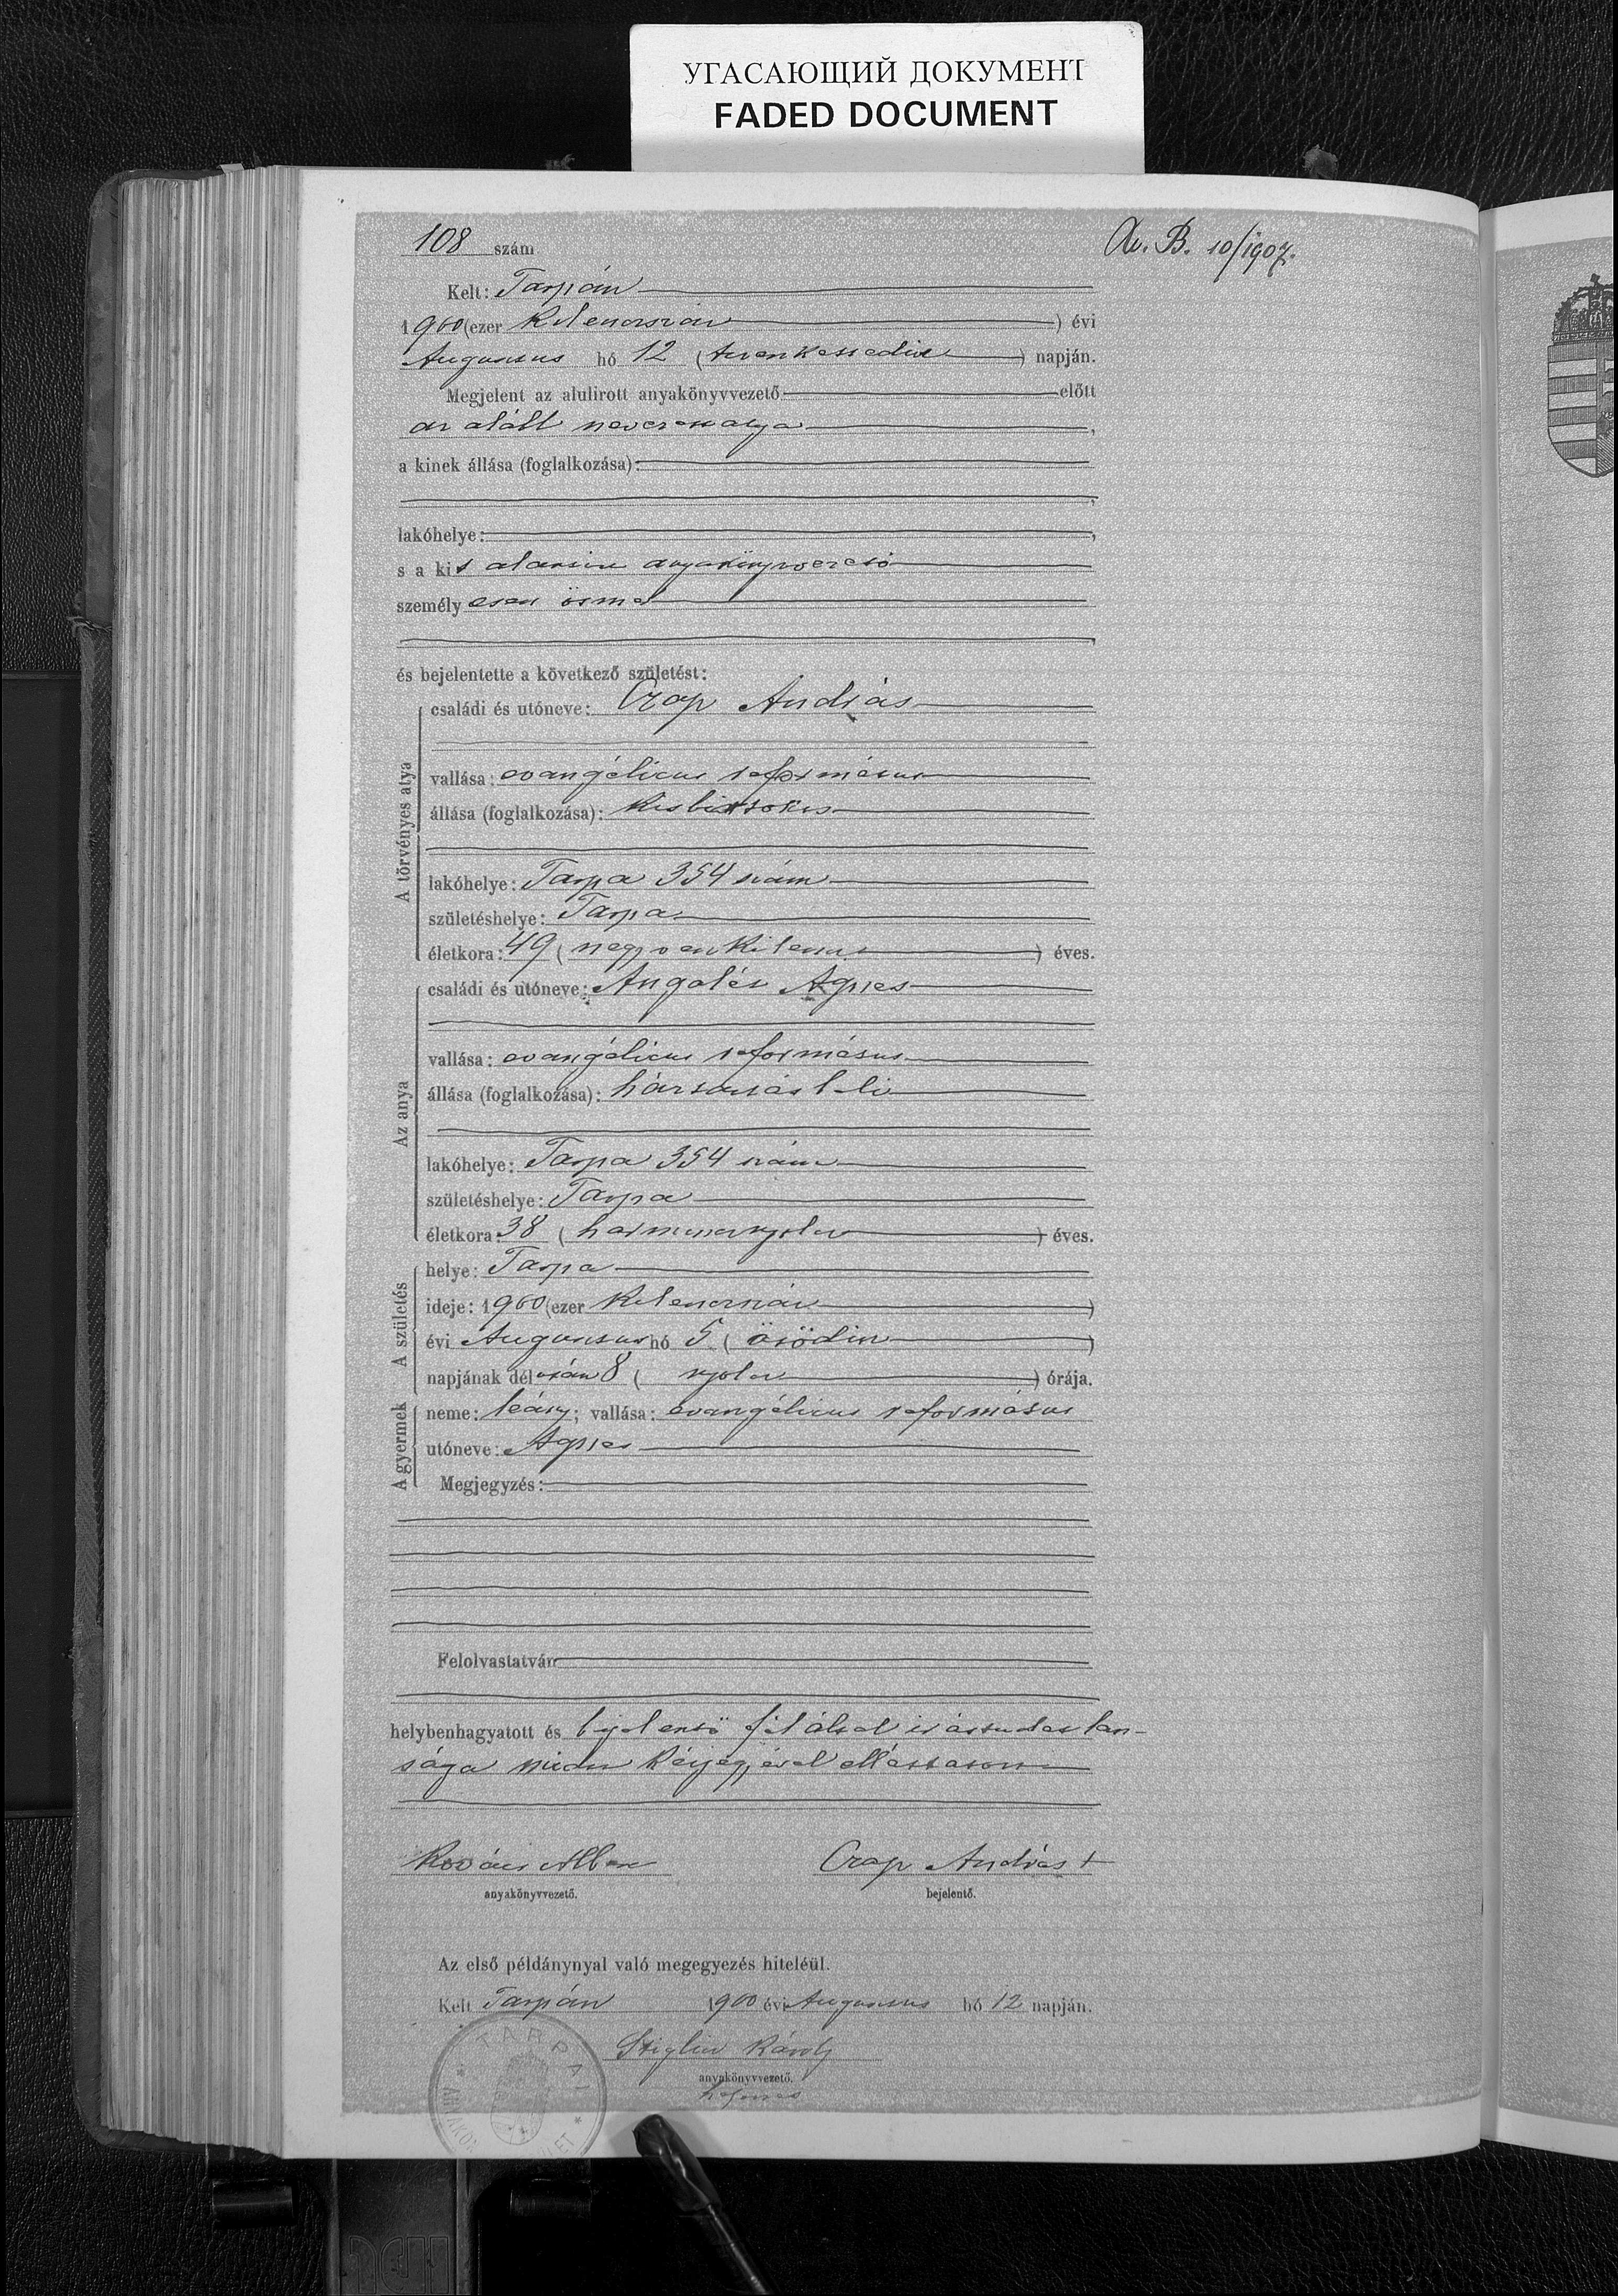 УГАСАЮЩИЙ ДОКУМЕНТ
FADED DOCUMENT
108 szám
Av. B. 10/1907.
Kelt: Tarpán
1900 (ezer kilencszáz ) évi
Augusztus hó 12 (tizenkettedik ) napján.
Megjelent az alulirott anyakönyvvezető előtt
az alább nevezett atya ,
a kinek állása (foglalkozása):
lakóhelye: ,
s a kit alantirt anyakönyvvezető
személyesen ismer
és bejelentette a következő születést:
A törvényes atya
családi és utóneve: Czap András
vallása: evangélicus református
állása (foglalkozása): kisbirtokos
lakóhelye: Tarpa 354 szám
születéshelye: Tarpa
életkora: 49 (negyvenkilencz ) éves.
Az anya
családi és utóneve: Angalét Ágnes
vallása: evangélicus református
állása (foglalkozása): háztartásbeli
lakóhelye: Tarpa 354 szám
születéshelye: Tarpa
életkora: 38 (harmincznyolcz ) éves.
A születés
helye: Tarpa
ideje: 1900 (ezer kilencszáz )
évi Augusztus hó 5 (ötödik )
napjának délután 8 ( nyolcz ) órája.
A gyermek
neme: leány; vallása: evangélicus református
utóneve: Ágnes
Megjegyzés:
Felolvastatván
helybenhagyatott és bejelentő fél által irástudatlan-
sága miatt kézjegyével elláttatott
Kovács Albert Czap András +
anyakönyvvezető. bejelentő.
Az első példánynyal való megegyezés hiteléül.
Kelt Tarpán 1900 évi Augusztus hó 12 napján.
Stiglicz Károly
anyakönyvvezető.
helyettes
TARPAI